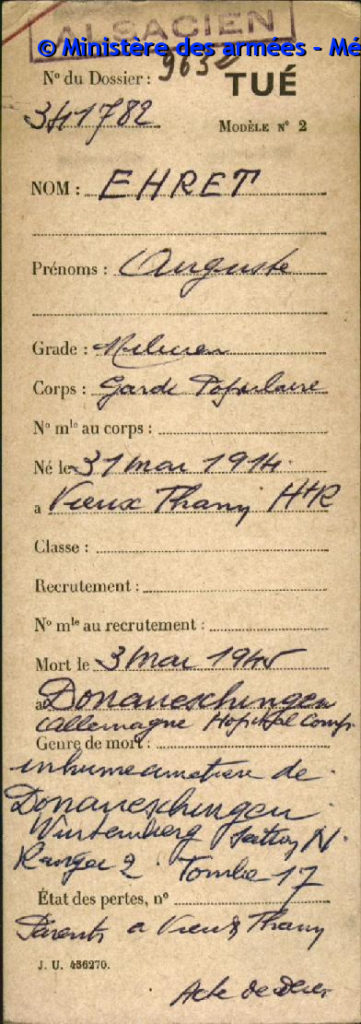 ALSACIEN
© Ministère des armées - Mé
N° du Dossier :
9632
TUÉ
341782
MODÈLE N° 2
NOM : EHRET
Prénoms : Auguste
Grade : Milicien
Corps : Garde Populaire
N° mle au corps :
Né le 31 mai 1914
a Vieux Thann Ht R
Classe :
Recrutement :
N° mle au recrutement :
Mort le 3 mai 1945
a Donaueschingen
(allemagne Hopital Comp.
Genre de mort :
inhumé cimetière de
Donaueschingen
Wurtemberg Section N.
Rangée 2 Tombe 17
État des pertes, n°
Parents a Vieux Thann
J. U. 436270.
Acte de Décès